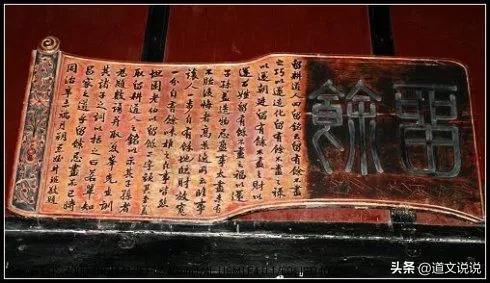 留餘
留耕道人四留銘云留有餘不盡
之巧以還造化留有餘不盡之祿
以還朝廷留有餘不盡之財以
還百姓留有餘不盡之福以還
子孫蓋造物忌盈事太盡未有
不貽後悔者高景逸所云臨事
讓人一步自有餘地臨財放寬
一分自有餘味推之凡事皆然
坦園老伯以留餘二字顏其堂蓋
取留耕道人之銘以示其子孫者
為題數語並取夏峯先生訓
其諸子之詞以括之曰若輩知
昌家之道乎留餘忌盡而已時
同治辛未端月朔愚姪牛瑄敬題
头条 @道文说说